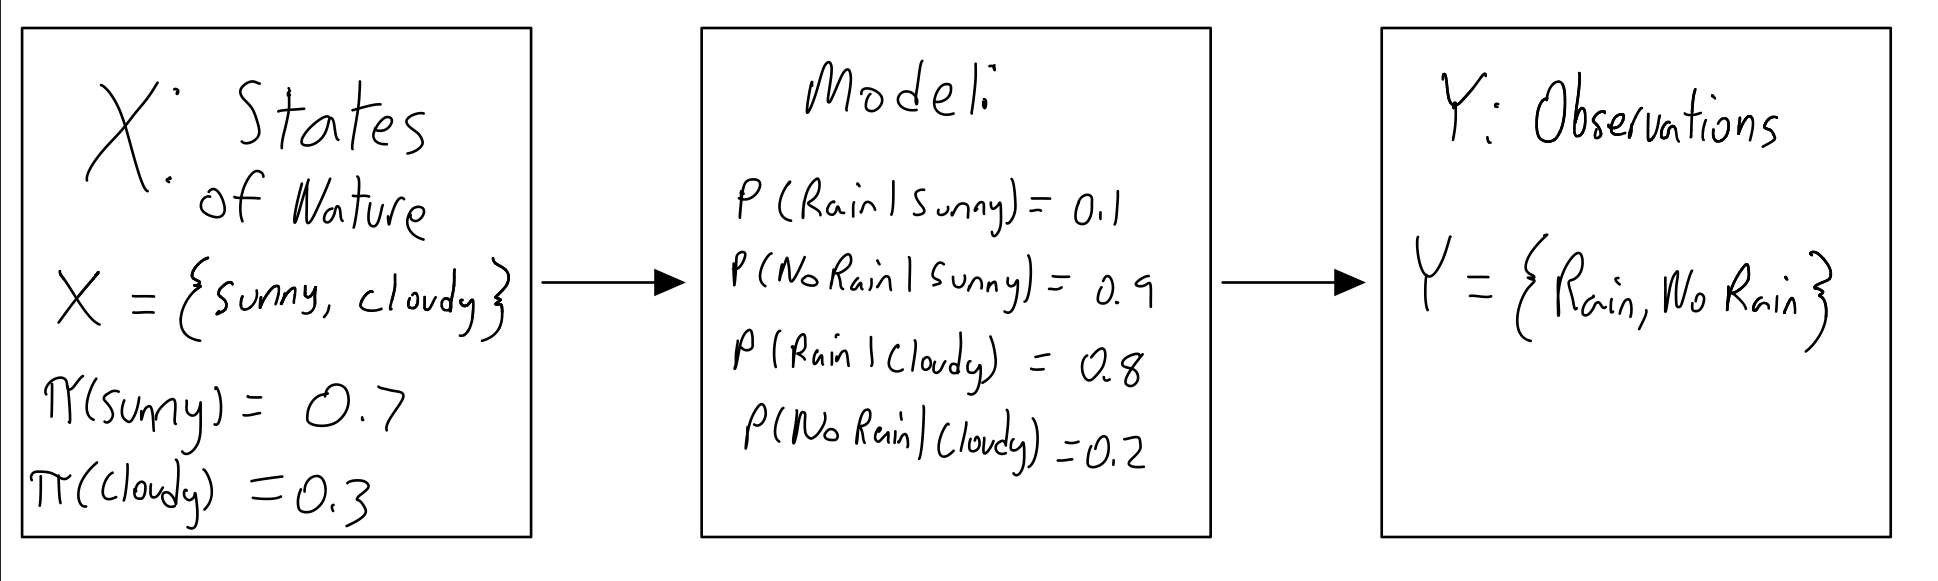 X: States
of Nature
X = {sunny, cloudy}
π(sunny) = 0.7
π(cloudy) = 0.3
Model:
P(Rain|Sunny) = 0.1
P(No Rain|Sunny) = 0.9
P(Rain|Cloudy) = 0.8
P(No Rain|Cloudy) = 0.2
Y: Observations
Y = {Rain, No Rain}